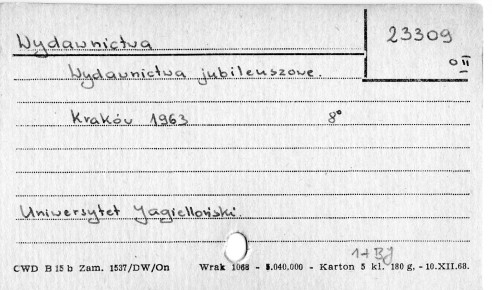 Wydawnictwa
23309
O II
Wydawnictwa jubileuszowe.
Kraków 1963 8°
Uniwersytet Jagielloński.
1+BJ
CWD B 15 b Zam. 1537/DW/On Wrak 1068 - 5.040.000 - Karton 5 kl. 180 g, - 10.XII.68.